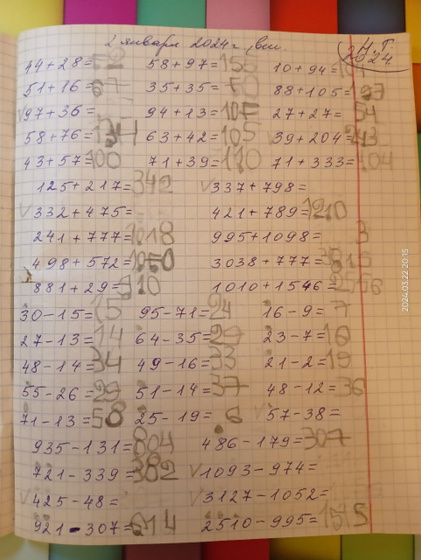 2 января 2024 г. вт. Н.Г. 2024
44+28=52 58+97=155 10+94=
51+16=67 35+35= 88+105=
97+36= 94+13=107 27+27=54
58+76=134 63+42=105 39+204=243
43+57=100 71+39=110 71+333=404
125+217=342 337+798=
332+475= 421+789=1210
241+777=1018 995+1098=
498+572= 3038+777=
881+29=910 1010+1546=
30-15=15 95-71=24 16-9=7
27-13=14 64-35=29 23-7=16
48-14=34 49-16=33 21-2=19
55-26=29 51-14=37 48-12=36
71-13=58 25-19=6 57-38=
935-131=804 486-179=307
721-339=382 1093-974=
425-48= 3127-1052=
921-307=614 2510-995=1515
2024.03.22 20:15